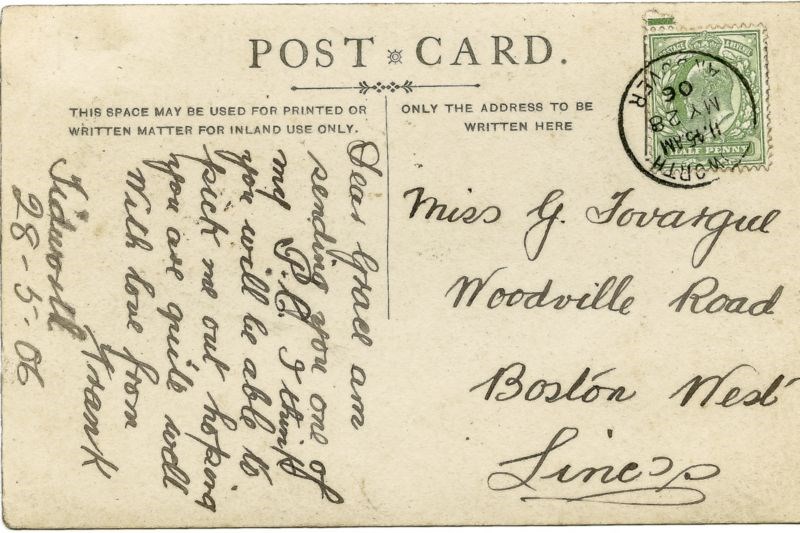 POST CARD.
THIS SPACE MAY BE USED FOR PRINTED OR
WRITTEN MATTER FOR INLAND USE ONLY.
ONLY THE ADDRESS TO BE
WRITTEN HERE
Dear Grace am
sending you one of
my P.C I think
you will be able to
pick me out hoping
you are quite well
With love from
Frank
Tidworth
28-5-06
Miss G. Tovargue
Woodville Road
Boston West
Lincs
POSTAGE & REVENUE
HALF PENNY
ANDOVER
11.45 AM
MY 28
06